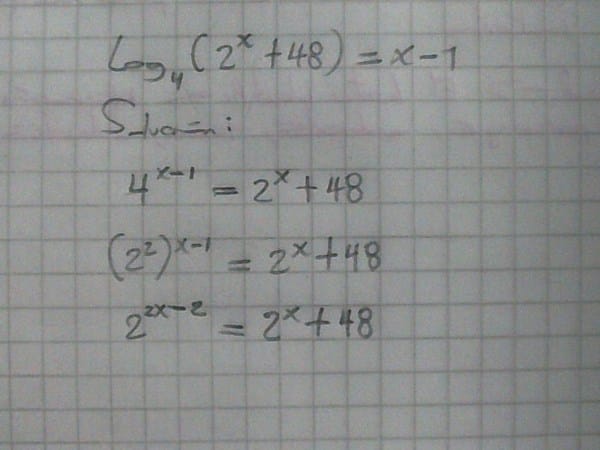 log₄(2ˣ+48)=x-1
4ˣ⁻¹=2ˣ+48
(2²)ˣ⁻¹=2ˣ+48
2²ˣ⁻²=2ˣ+48